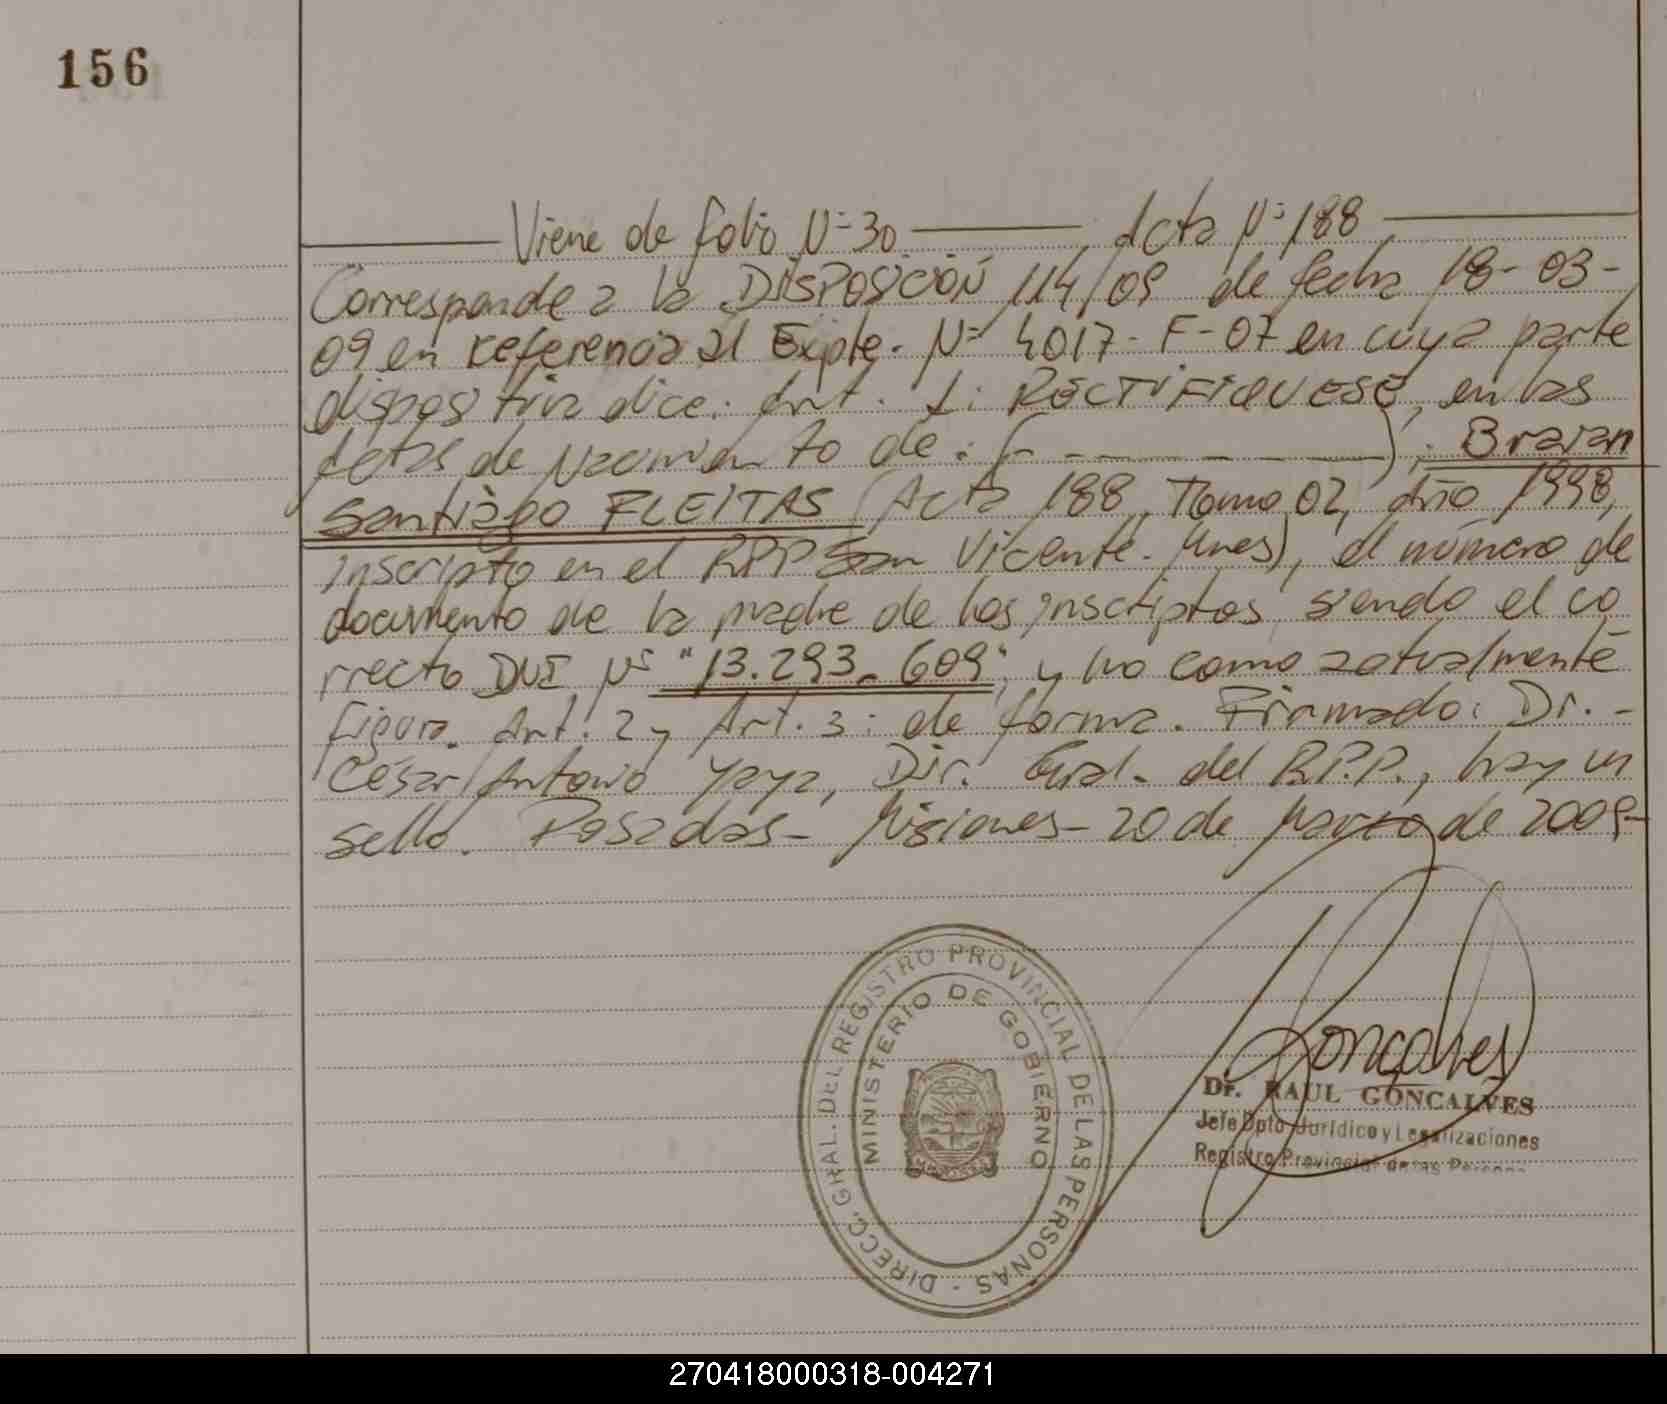 156
Viene de folio Nº 30 Acta Nº 188
Corresponde a la DISPOSICIÓN 114/09 de fecha 18-03-
09 en referencia al Expte. Nº 4017-F-07 en cuya parte
dispositiva dice: Art. 1: RECTIFIQUESE, en las
Actas de Nacimiento de: (- - - - -), Braian
Santiago FLEITAS (Acta 188, Tomo 02, Año 1998,
inscripto en el RPP San Vicente. Mnes), el número de
documento de la madre de los inscriptos, siendo el co
rrecto DNI Nº "13.293.609", y no como actualmente
figura. Art. 2 y Art. 3: de forma. Firmado: Dr. -
César Antonio Yaya, Dir. Gral. del R.P.P., hay un
sello. Posadas - Misiones - 20 de Marzo de 2009-
DIRECC. GRAL. DEL REGISTRO PROVINCIAL DE LAS PERSONAS -
MINISTERIO DE GOBIERNO
Gonçalves
Dr. RAUL GONCALVES
Jefe Dpto Jurídico y Legalizaciones
Registro Provincial de las Persona
270418000318-004271